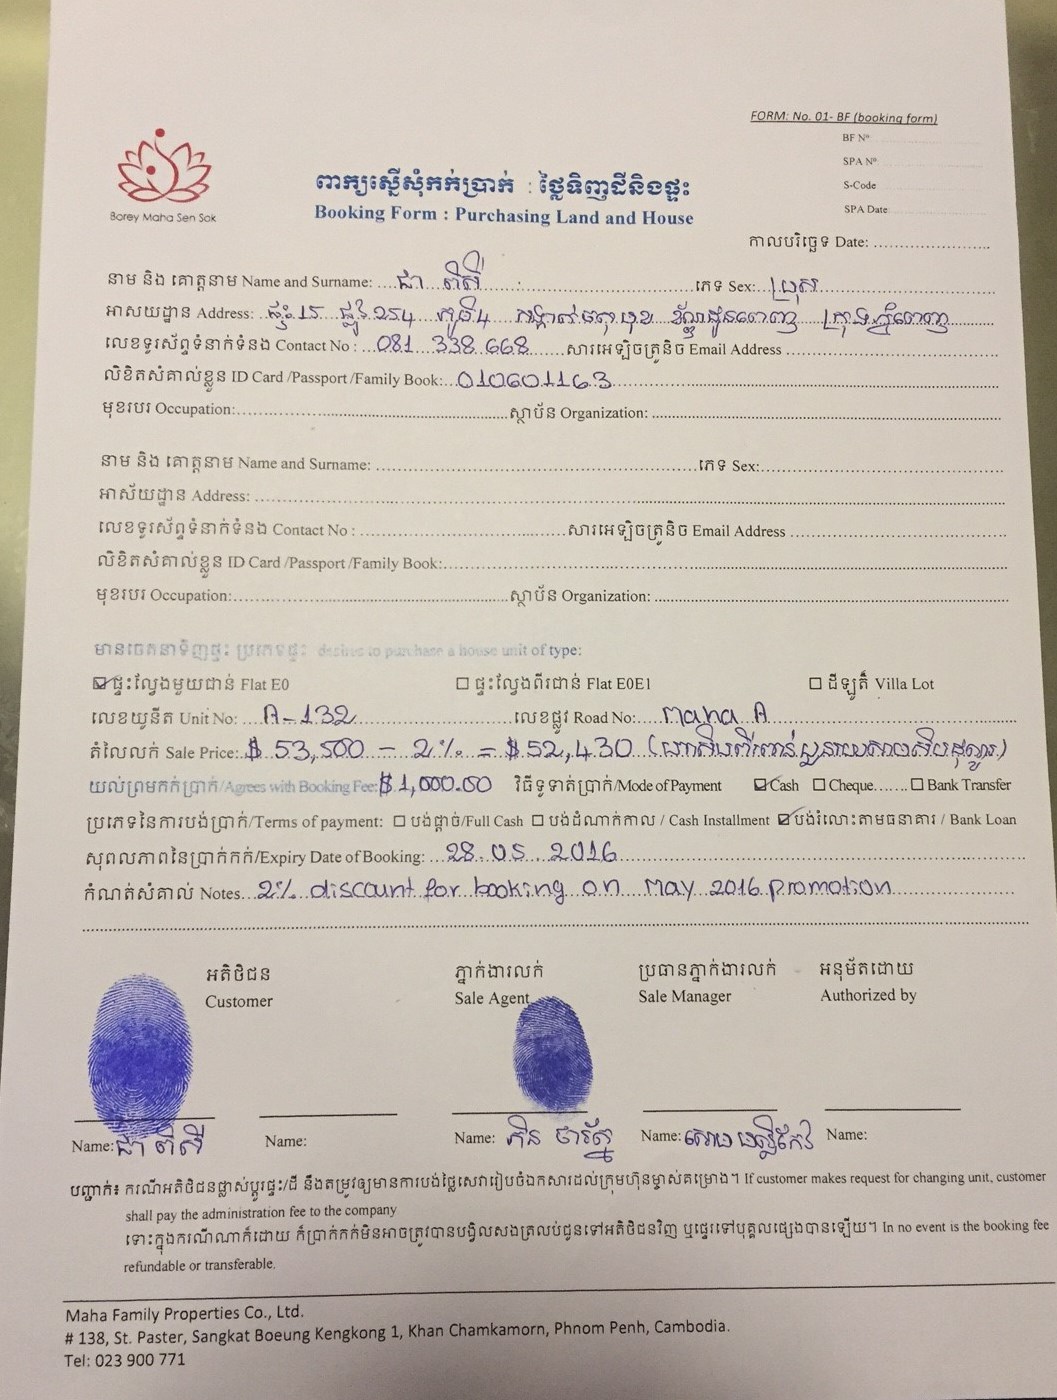 FORM: No. 01- BF (booking form)
BF Nº
SPA Nº
S-Code
SPA Date
Borey Maha Sen Sok
ពាក្យស្នើសុំកក់ប្រាក់ : ថ្លៃទិញដីនិងផ្ទះ
Booking Form : Purchasing Land and House
កាលបរិច្ឆេទ Date: ........................
នាម និង គោត្តនាម Name and Surname: ....ជា ពិសី ...... ភេទ Sex: ប្រុស
អាសយដ្ឋាន Address: ផ្ទះ 15 ផ្លូវ 254 ភូមិ4 សង្កាត់ចតុមុខ ខ័ណ្ឌដូនពេញ ក្រុងភ្នំពេញ
លេខទូរស័ព្ទទំនាក់ទំនង Contact No : 081 338 668 សារអេឡិចត្រូនិច Email Address
លិខិតសំគាល់ខ្លួន ID Card /Passport /Family Book: 010601163
មុខរបរ Occupation: ស្ថាប័ន Organization:
នាម និង គោត្តនាម Name and Surname: ភេទ Sex:
អាស័យដ្ឋាន Address:
លេខទូរស័ព្ទទំនាក់ទំនង Contact No : សារអេឡិចត្រូនិច Email Address
លិខិតសំគាល់ខ្លួន ID Card /Passport /Family Book:
មុខរបរ Occupation: ស្ថាប័ន Organization:
មានចេតនាទិញផ្ទះ ប្រភេទផ្ទះ desires to purchase a house unit of type:
ផ្ទះល្វែងមួយជាន់ Flat E0 ផ្ទះល្វែងពីរជាន់ Flat E0E1 ដីឡូតិ៍ Villa Lot
លេខយូនីត Unit No: A-132 លេខផ្លូវ Road No: Maha A
តំលៃលក់ Sale Price: $ 53,500 - 2% = $ 52,430 (ហាសិបពីរពាន់បួនរយសាមសិបដុល្លារ)
យល់ព្រមកក់ប្រាក់/Agrees with Booking Fee: $ 1,000.00 វិធីទូទាត់ប្រាក់/Mode of Payment Cash Cheque....... Bank Transfer
ប្រភេទនៃការបង់ប្រាក់/Terms of payment: បង់ផ្តាច់/Full Cash បង់ដំណាក់កាល / Cash Installment បង់រំលោះតាមធនាគារ / Bank Loan
សុពលភាពនៃប្រាក់កក់/Expiry Date of Booking: 28. 05 2016
កំណត់សំគាល់ Notes 2% discount for booking on May 2016 promotion
អតិថិជន ភ្នាក់ងារលក់ ប្រធានភ្នាក់ងារលក់ អនុម័តដោយ
Customer Sale Agent Sale Manager Authorized by
Name: ជា ពិសី Name: Name: Name: Name:
បញ្ជាក់៖ ករណីអតិថិជនផ្លាស់ប្តូរផ្ទះ/ដី នឹងតម្រូវឲ្យមានការបង់ថ្លៃសេវារៀបចំឯកសារដល់ក្រុមហ៊ុនម្ចាស់គម្រោង។ If customer makes request for changing unit, customer
shall pay the administration fee to the company
ទោះក្នុងករណីណាក៏ដោយ ក៏ប្រាក់កក់មិនអាចត្រូវបានបង្វិលសងត្រលប់ជូនទៅអតិថិជនវិញ ឬផ្ទេរទៅបុគ្គលផ្សេងបានឡើយ។ In no event is the booking fee
refundable or transferable.
Maha Family Properties Co., Ltd.
# 138, St. Paster, Sangkat Boeung Kengkong 1, Khan Chamkamorn, Phnom Penh, Cambodia.
Tel: 023 900 771